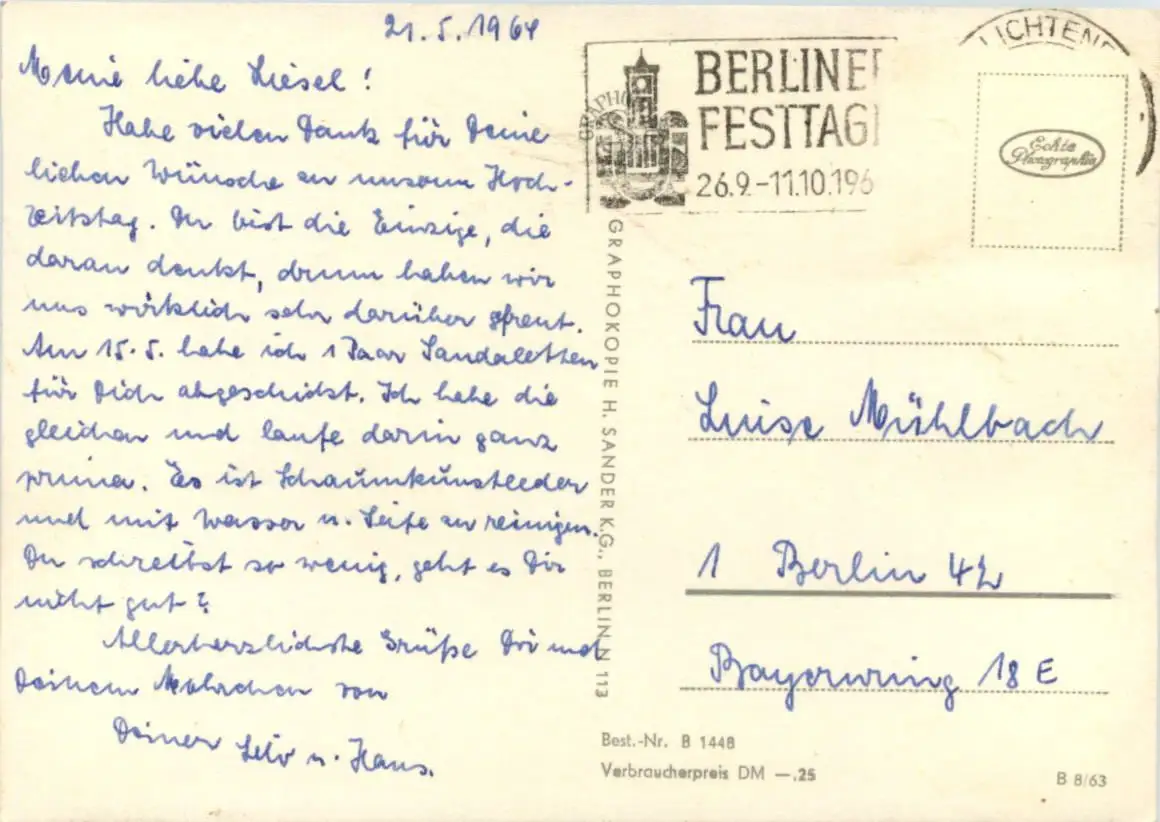 21.5.1964
Meine liebe Liesel!
Habe vielen Dank für Deine
lieben Wünsche zu unserm Hoch-
zeitstag. Du bist die Einzige, die
daran denkt, drum haben wir
uns wirklich sehr darüber gefreut.
Am 15.5. habe ich 1 Paar Sandaletten
für Dich abgeschickt. Ich habe die
gleichen und laufe darin ganz
prima. Es ist Schaumkunstleder
und mit Wasser u. Seife zu reinigen.
Du schreibst so wenig, geht es Dir
nicht gut?
Allerherzlichste Grüße Dir und
Deinem von
Deiner u. Hans.
BERLINE
FESTTAG
26.9.-11.10.196
LICHTEN
GRAPHO
Echte
Photographie
GRAPHOKOPIE H. SANDER K.G., BERLIN N 113
Frau
Luise Mühlbach
1 Berlin 42
Bayernring 18 E
Best.-Nr. B 1448
Verbraucherpreis DM —.25
B 8/63